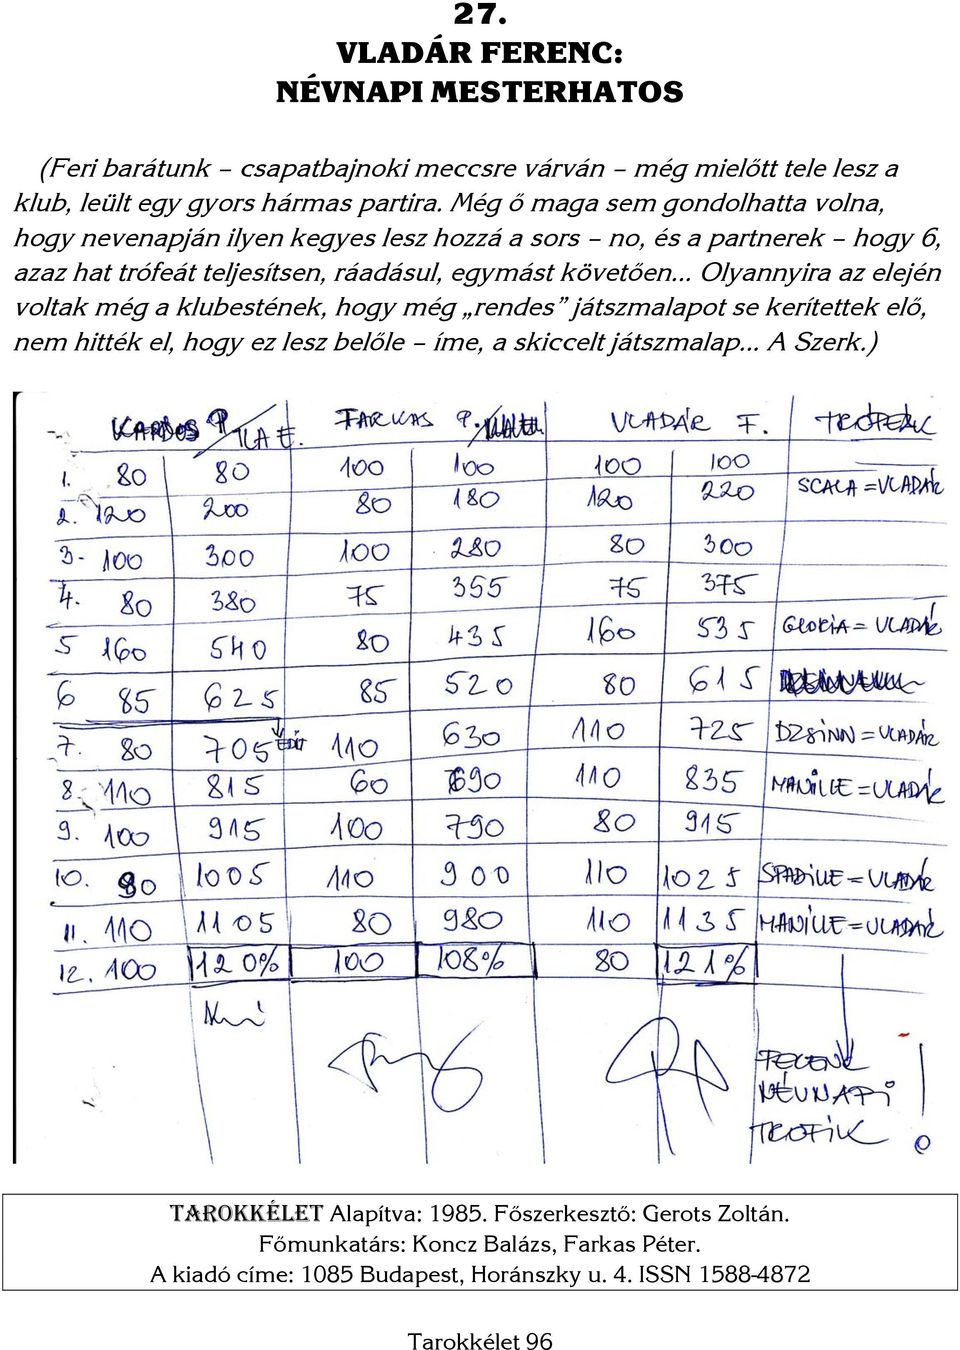 27.
VLADÁR FERENC:
NÉVNAPI MESTERHATOS
(Feri barátunk – csapatbajnoki meccsre várván – még mielőtt tele lesz a
klub, leült egy gyors hármas partira. Még ő maga sem gondolhatta volna,
hogy nevenapján ilyen kegyes lesz hozzá a sors – no, és a partnerek – hogy 6,
azaz hat trófeát teljesítsen, ráadásul, egymást követően... Olyannyira az elején
voltak még a klubestének, hogy még „rendes” játszmalapot se kerítettek elő,
nem hitték el, hogy ez lesz belőle – íme, a skiccelt játszmalap... A Szerk.)
KARDOS P / KA E. FARKAS P. VLADÁR F. TRÓFEÁK
1. 80 80 100 100 100 100
2. 120 200 80 180 120 220 SCALA = VLADÁR
3. 100 300 100 280 80 300
4. 80 380 75 355 75 375
5 160 540 80 435 160 535 GLORIA = VLADÁR
6 85 625 85 520 80 615
7. 80 705 110 630 110 725 DZSINN = VLADÁR
8. 110 815 60 690 110 835 MANILLE = VLADÁR
9. 100 915 100 790 80 915
10. 90 1005 110 900 110 1025 SPADILLE = VLADÁR
11. 110 1105 80 980 110 1135 MANILLE = VLADÁR
12. 100 1120% 100 108% 80 121%
FERENC
NÉVNAPI
TROFIK !
TAROKKÉLET Alapítva: 1985. Főszerkesztő: Gerots Zoltán.
Főmunkatárs: Koncz Balázs, Farkas Péter.
A kiadó címe: 1085 Budapest, Horánszky u. 4. ISSN 1588-4872
Tarokkélet 96